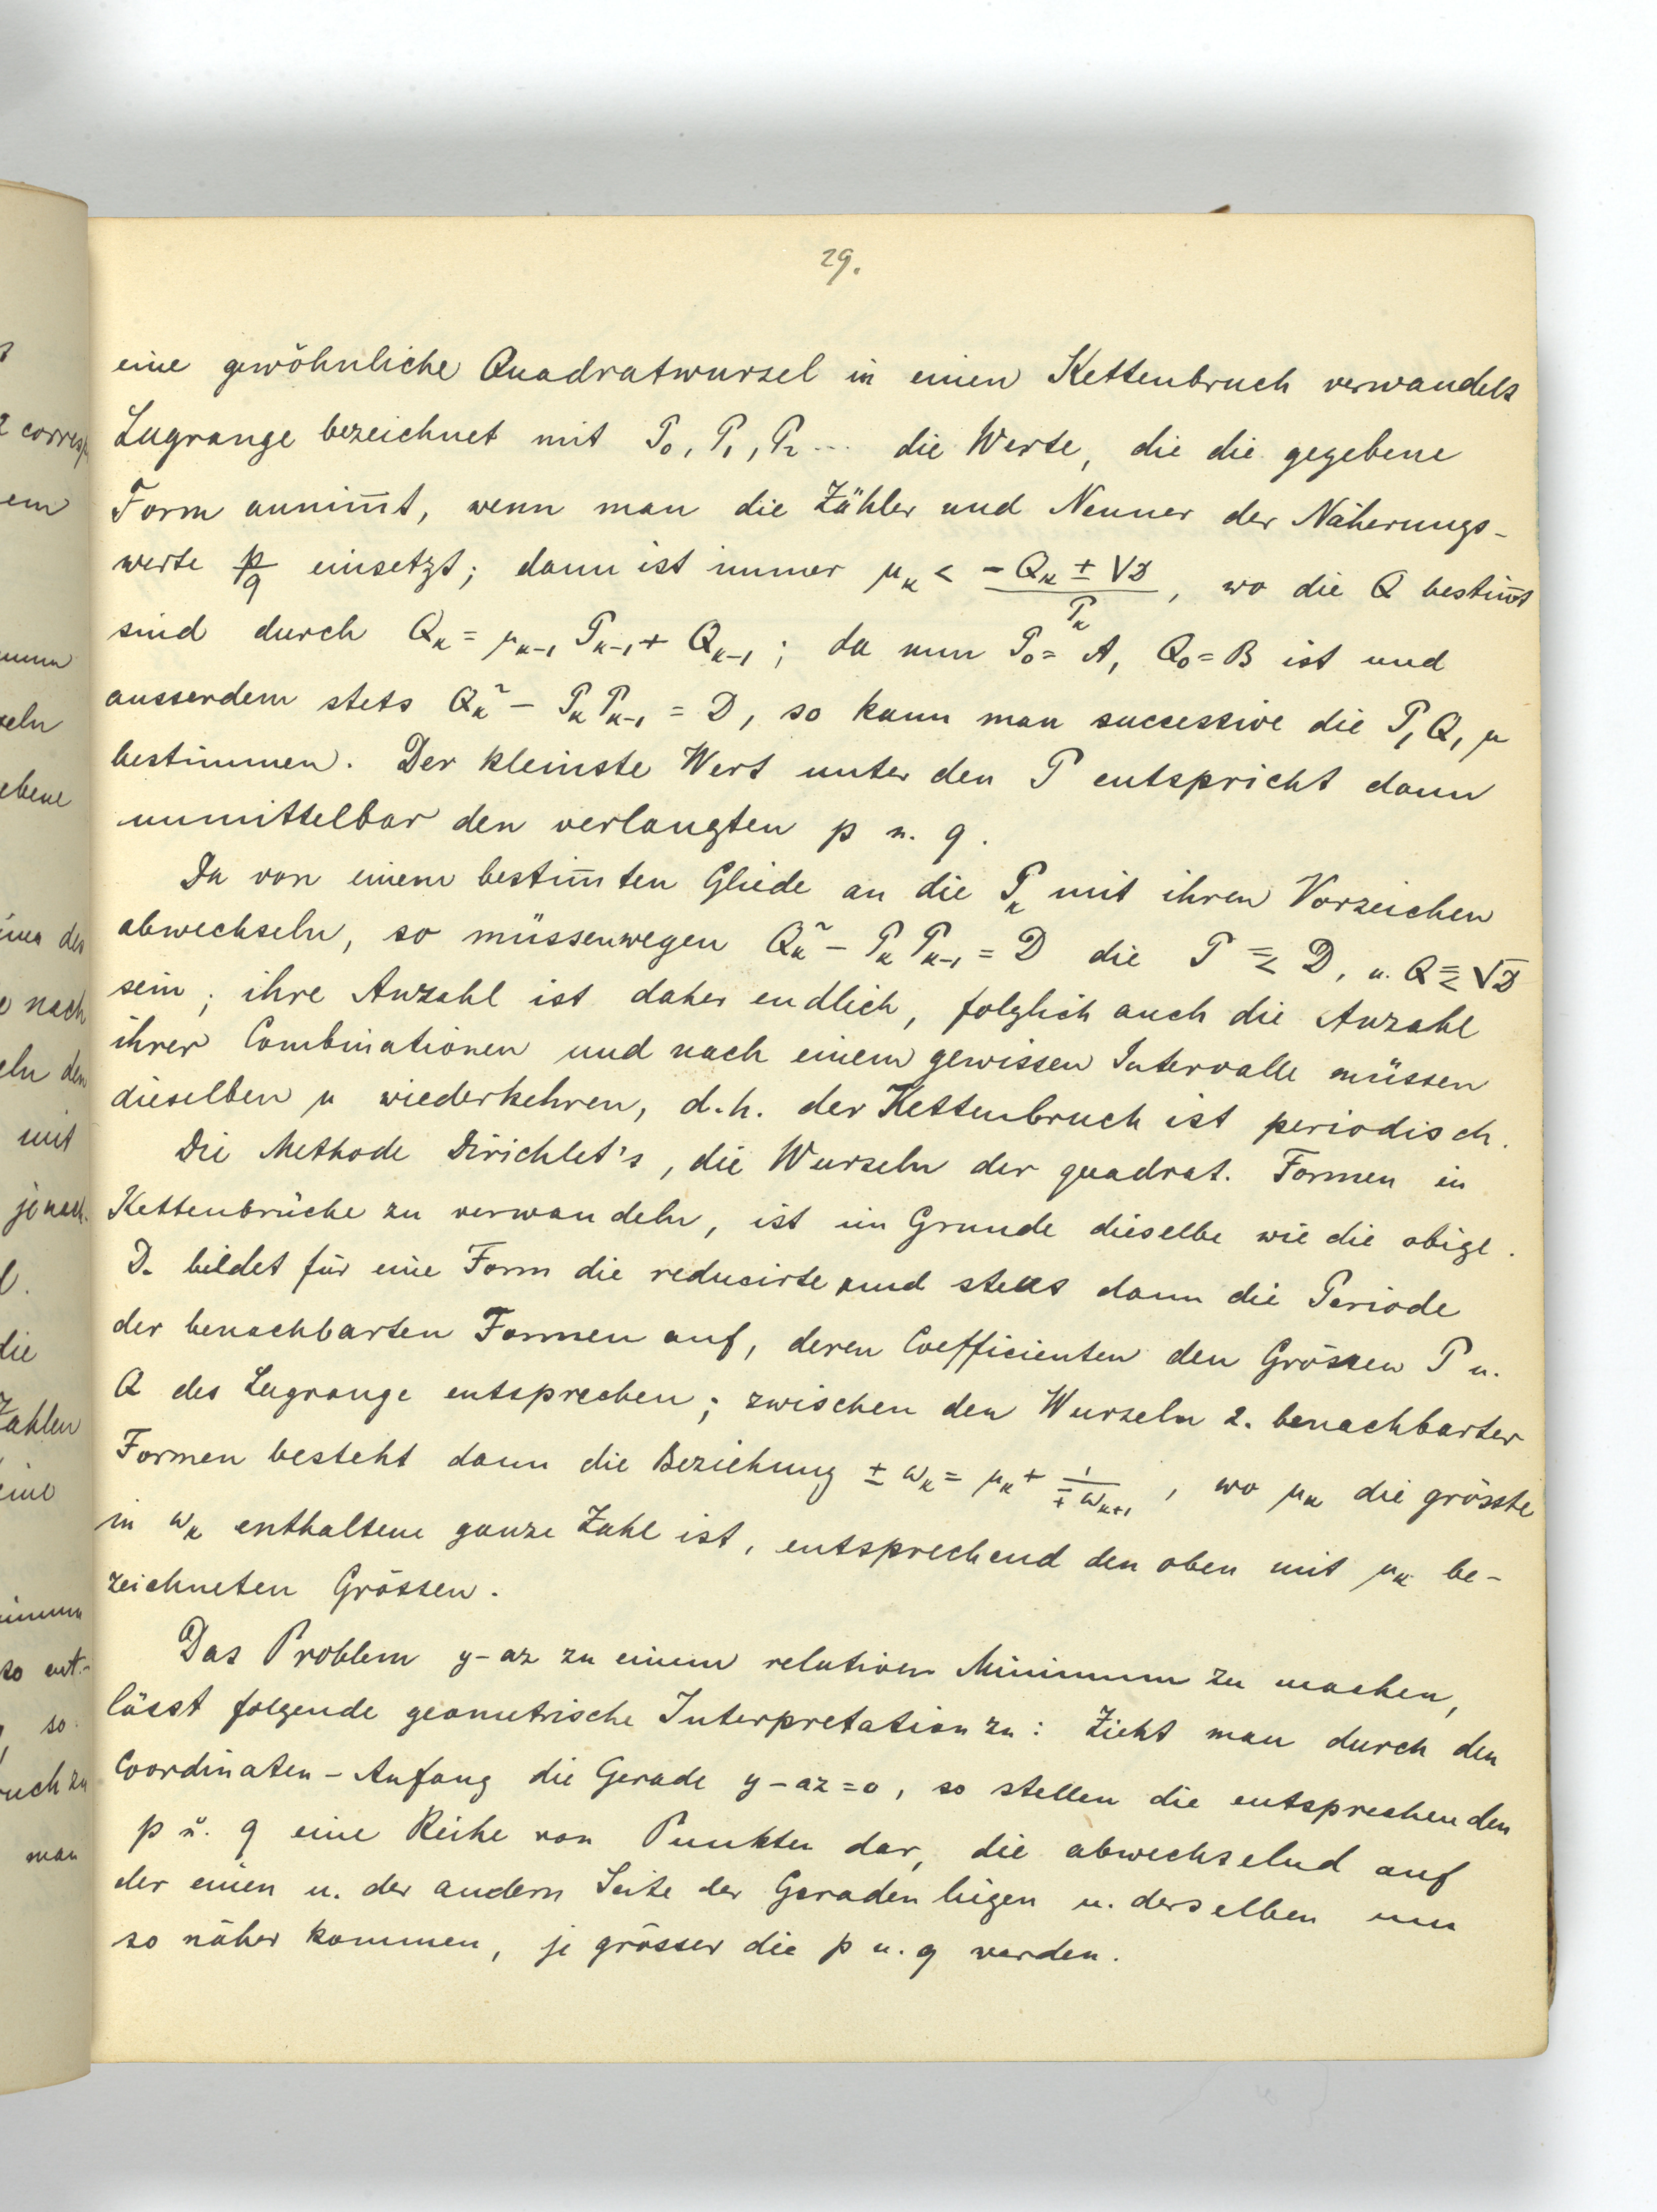 29.
eine gewöhnliche Quadratwurzel in einen Kettenbruch verwandelt
Lagrange bezeichnet mit P₀, P₁, P₂ ... die Werte, die die gegebene
Form annim̅t, wenn man die Zähler und Nenner der Näherungs-
werte p/q einsetzt; dann ist immer μₖ < (-Qₖ ± √D)/Pₖ, wo die Q bestim̅t
sind durch Qₖ = μₖ₋₁ Pₖ₋₁ + Qₖ₋₁; da nun P₀ = A, Q₀ = B ist und
ausserdem stets Qₖ² - PₖPₖ₋₁ = D, so kann man successive die P, Q, μ
bestimmen. Der kleinste Wert unter den P entspricht dann
unmittelbar den verlangten p u. q.
Da von einem bestim̅ten Gliede an die Pₖ mit ihren Vorzeichen
abwechseln, so müssen wegen Qₖ² - PₖPₖ₋₁ = D die P ≦ D, u. Q ≦ √D
sein; ihre Anzahl ist daher endlich, folglich auch die Anzahl
ihrer Combinationen und nach einem gewissen Intervalle müssen
dieselben μ wiederkehren, d.h. der Kettenbruch ist periodisch.
Die Methode Dirichlet's, die Wurzeln der quadrat. Formen in
Kettenbrüche zu verwandeln, ist im Grunde dieselbe wie die obige.
D. bildet für eine Form die reducirte und stellt dann die Periode
der benachbarten Formen auf, deren Coefficienten den Grössen P u.
Q des Lagrange entsprechen; zwischen den Wurzeln 2. benachbarter
Formen besteht dann die Beziehung ± ωₖ = μₖ + 1/(∓ ωₖ₊₁), wo μₖ die grösste
in ωₖ enthaltene ganze Zahl ist, entsprechend den oben mit μₖ be-
zeichneten Grössen.
Das Problem y-az zu einem relativen Minimum zu machen,
lässt folgende geometrische Interpretation zu: Zieht man durch den
Coordinaten-Anfang die Gerade y-az=0, so stellen die entsprechenden
p u. q eine Reihe von Punkten dar, die abwechselnd auf
der einen u. der andern Seite der Geraden liegen u. derselben um
so näher kommen, je grösser die p u. q werden.